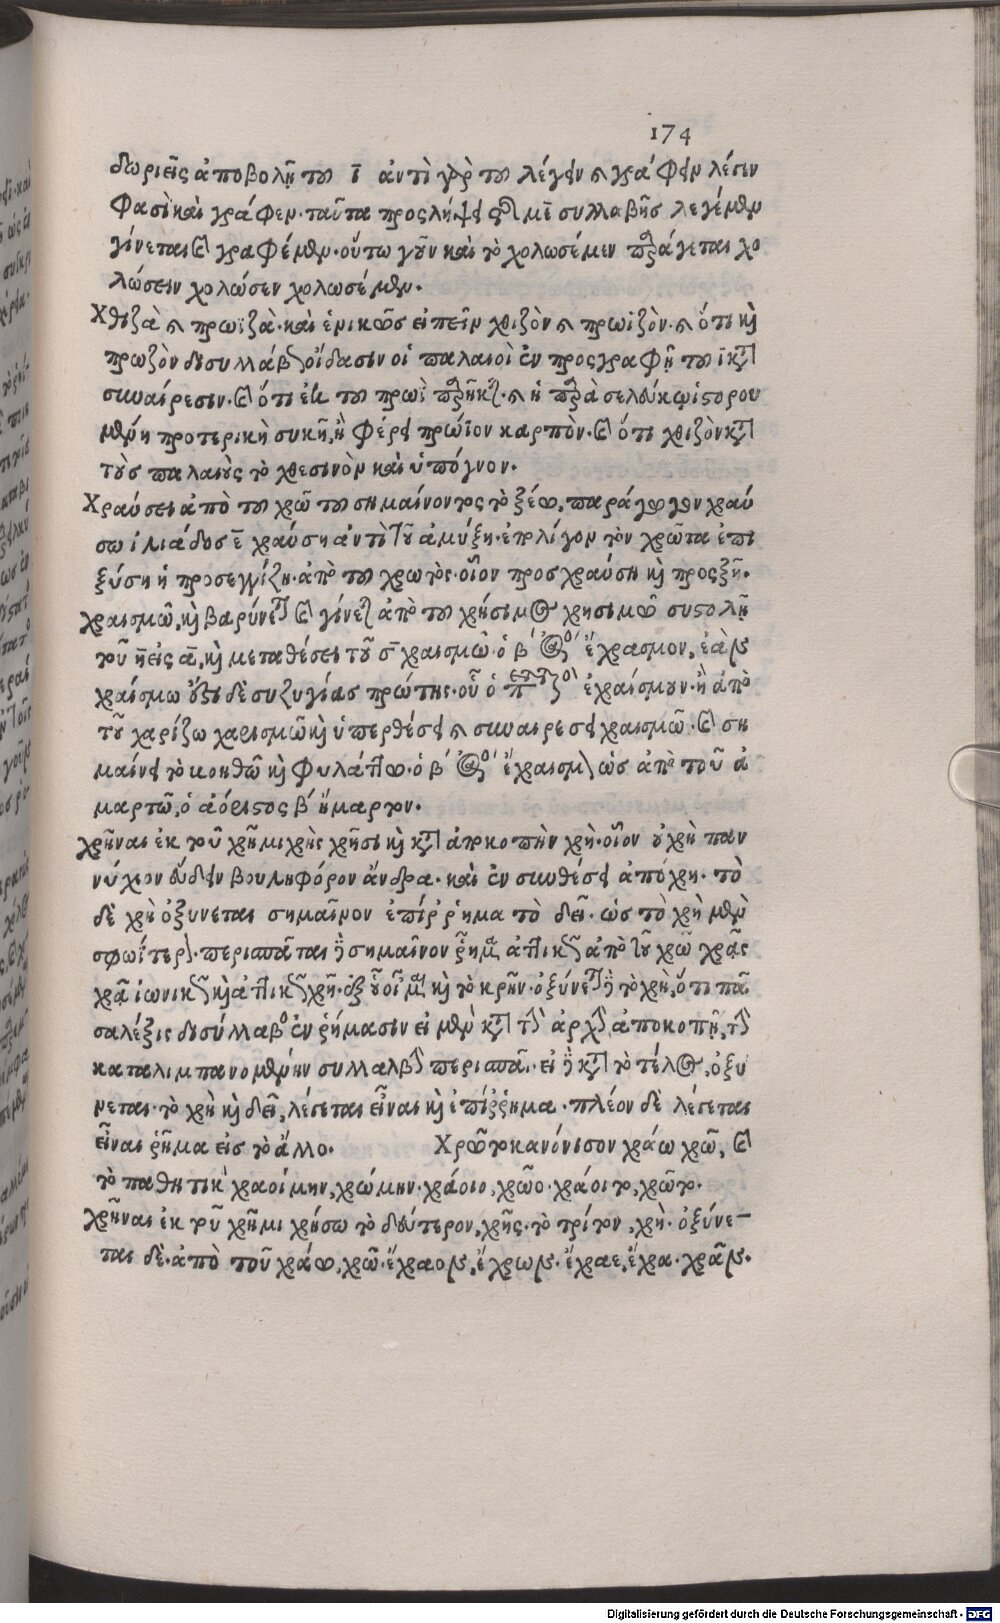 174
δωριεῖς ἀποβολῇ τοῦ ῑ ἀντὶ γὰρ τοῦ λέγειν καὶ γράφειν λέγεν
φασὶ καὶ γράφεν· ταῦτα προςλήψει τῆς με συλλαβῆς λεγέμεν
γίνεται καὶ γραφέμεν· οὕτω γοῦν καὶ τὸ χολωσέμεν παράγεται χο
λώσειν χολώσεν χολωσέμεν.
Χθιζὰ καὶ πρωϊζὰ· καὶ ἑνικῶς εἰπεῖν χθιζὸν καὶ πρωϊζὸν· καὶ ὅτι καὶ
πρωζὸν δισυλλάβως οἴδασιν οἱ παλαιοὶ ἐν προςγραφῇ τοῦ ῑ κατὰ
συναίρεσιν· καὶ ὅτι ἐκ τοῦ πρωῒ παρῆκται· καὶ ἡ παρὰ σελεύκῳ ἱστορου
μένη προτερικὴ συκῆ, ἢ φέρει πρώϊον καρπὸν· καὶ ὅτι χθιζὸν κατὰ
τοὺς παλαιοὺς τὸ χθεσινὸν καὶ ὑπόγυον.
Χραύσει ἀπὸ τοῦ χρῶ τοῦ σημαίνοντος τὸ ξέω, παράγωγον χραύ
σω ἰλιάδος ε̄ χραύσῃ ἀντὶ τοῦ ἀμύξῃ· ἐπ' ὀλίγον τὸν χρῶτα ἐπι
ξύσῃ ἢ προσεγγίζῃ· ἀπὸ τοῦ χρωτὸς· οἷον προσχραύσῃ καὶ προςξῇ.
χραισμῶ, καὶ βαρύνεται καὶ γίνεται ἀπὸ τοῦ χρήσιμος χρησιμῶ συστολῇ
τοῦ η̄ εἰς ᾱ, καὶ μεταθέσει τοῦ σ̄ χραισμῶ· ὁ β´ ἀόριστος ἔχρασμον, ἐὰν
χραίσμω ἔστι δὲ συζυγίας πρώτης· οὗ ὁ ἐχραίσμουν· ἢ ἀπὸ
τοῦ χαρίζω χαρισμῶ καὶ ὑπερθέσει καὶ συναιρεσει χραισμῶ· καὶ ση
μαίνει τὸ βοηθῶ καὶ φυλάττω· ὁ β´ ἀόριστος ἔχραισμον ὡς ἀπὸ τοῦ ἁ
μαρτῶ, ὁ ἀόριστος β´ ἥμαρτον.
χρῆναι ἐκ τοῦ χρῆμι χρὴς χρῆσι καὶ κατὰ ἀποκοπὴν χρὴ· οἷον οὐ χρὴ παν
νύχιον εὕδειν βουληφόρον ἄνδρα· καὶ ἐν συνθέσει ἀπόχρη· τὸ
δὲ χρὴ ὀξύνεται σημαῖνον ἐπίῤῥημα τὸ δεῖ· ὡς τὸ χρὴ μὲν
σφωΐτερον· περισπᾶται δὲ σημαῖνον ῥῆμα ἀττικῶς ἀπὸ τοῦ χρῶ χρᾷς
χρᾷ ἰωνικῶς καὶ ἀττικῶς χρῇ· καὶ τὸ κρῆν· ὀξύνεται δὲ τὸ χρὴ, ὅτι πᾶ
σα λέξις δισύλλαβος ἐν ῥήμασιν εἰ μὲν κατὰ τὴν ἀρχὴν ἀποκοπῇ, τὴν
καταλιμπανομένην συλλαβὴν περισπᾷ· εἰ δὲ κατὰ τὸ τέλος, ὀξύ
νεται· τὸ χρὴ καὶ δεῖ, λέγεται εἶναι καὶ ἐπίῤῥημα· πλέον δὲ λέγεται
εἶναι ῥῆμα εἰς τὸ ἄλλο. Χρῷτο κανόνισον χράω χρῶ, καὶ
τὸ παθητικὸν χραοίμην, χρώμην· χράοιο, χρῷο· χράοιτο, χρῷτο.
χρῆναι ἐκ τοῦ χρῆμι χρήσω τὸ δεύτερον, χρῆς· τὸ τρίτον, χρὴ· ὀξύνε-
ται δὲ· ἀπὸ τοῦ χράω, χρῶ· ἔχραον, ἔχρων· ἔχραε, ἔχρα· χρᾶν.
Digitalisierung gefördert durch die Deutsche Forschungsgemeinschaft - DFG